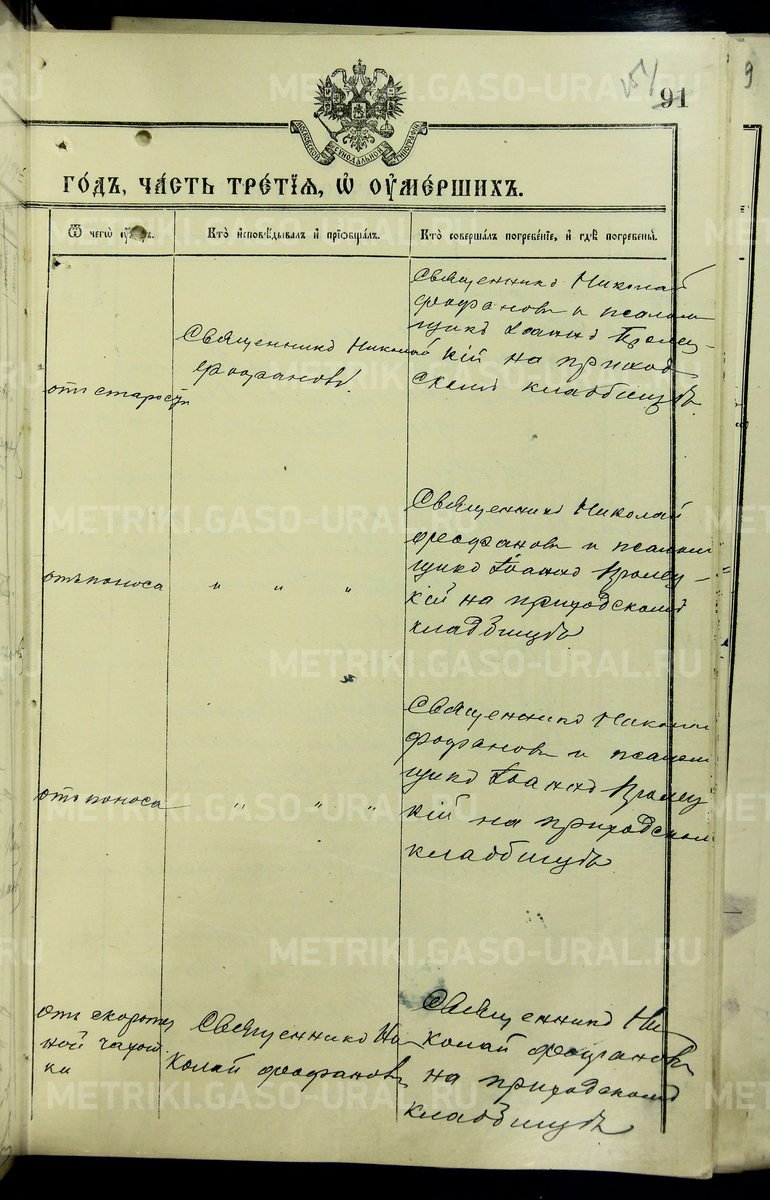 91
МОСКОВСКОЙ СѴНОДАЛЬНОЙ ТИПОГРАФІИ
ГОДЪ, ЧАСТЬ ТРЕТІЯ, Ѡ ОУМЕРШИХЪ.
Ѿ чегѡ
Кто исповѣдывалъ и пріобщалъ.
Кто совершалъ погребеніе, и гдѣ погребены.
отъ старости
Священникъ Николай
Феофановъ.
Священникъ Николай
Феофановъ и псалом
щикъ Іоаннъ
кій на приход
скомъ кладбищѣ.
отъ поноса
" " "
Священникъ Николай
Феофановъ и псалом
щикъ Іоаннъ
кій на приходскомъ
кладбищѣ
отъ поноса
" " "
Священникъ Николай
Феофановъ и псалом
щикъ Іоаннъ
кій на приходском
кладбищѣ
отъ скороте
ной чахот
ки
Священникъ Ни
колай Феофановъ
Священникъ Ни
колай Феофановъ
на приходскомъ
кладбищѣ
METRIKI.GASO-URAL.RU